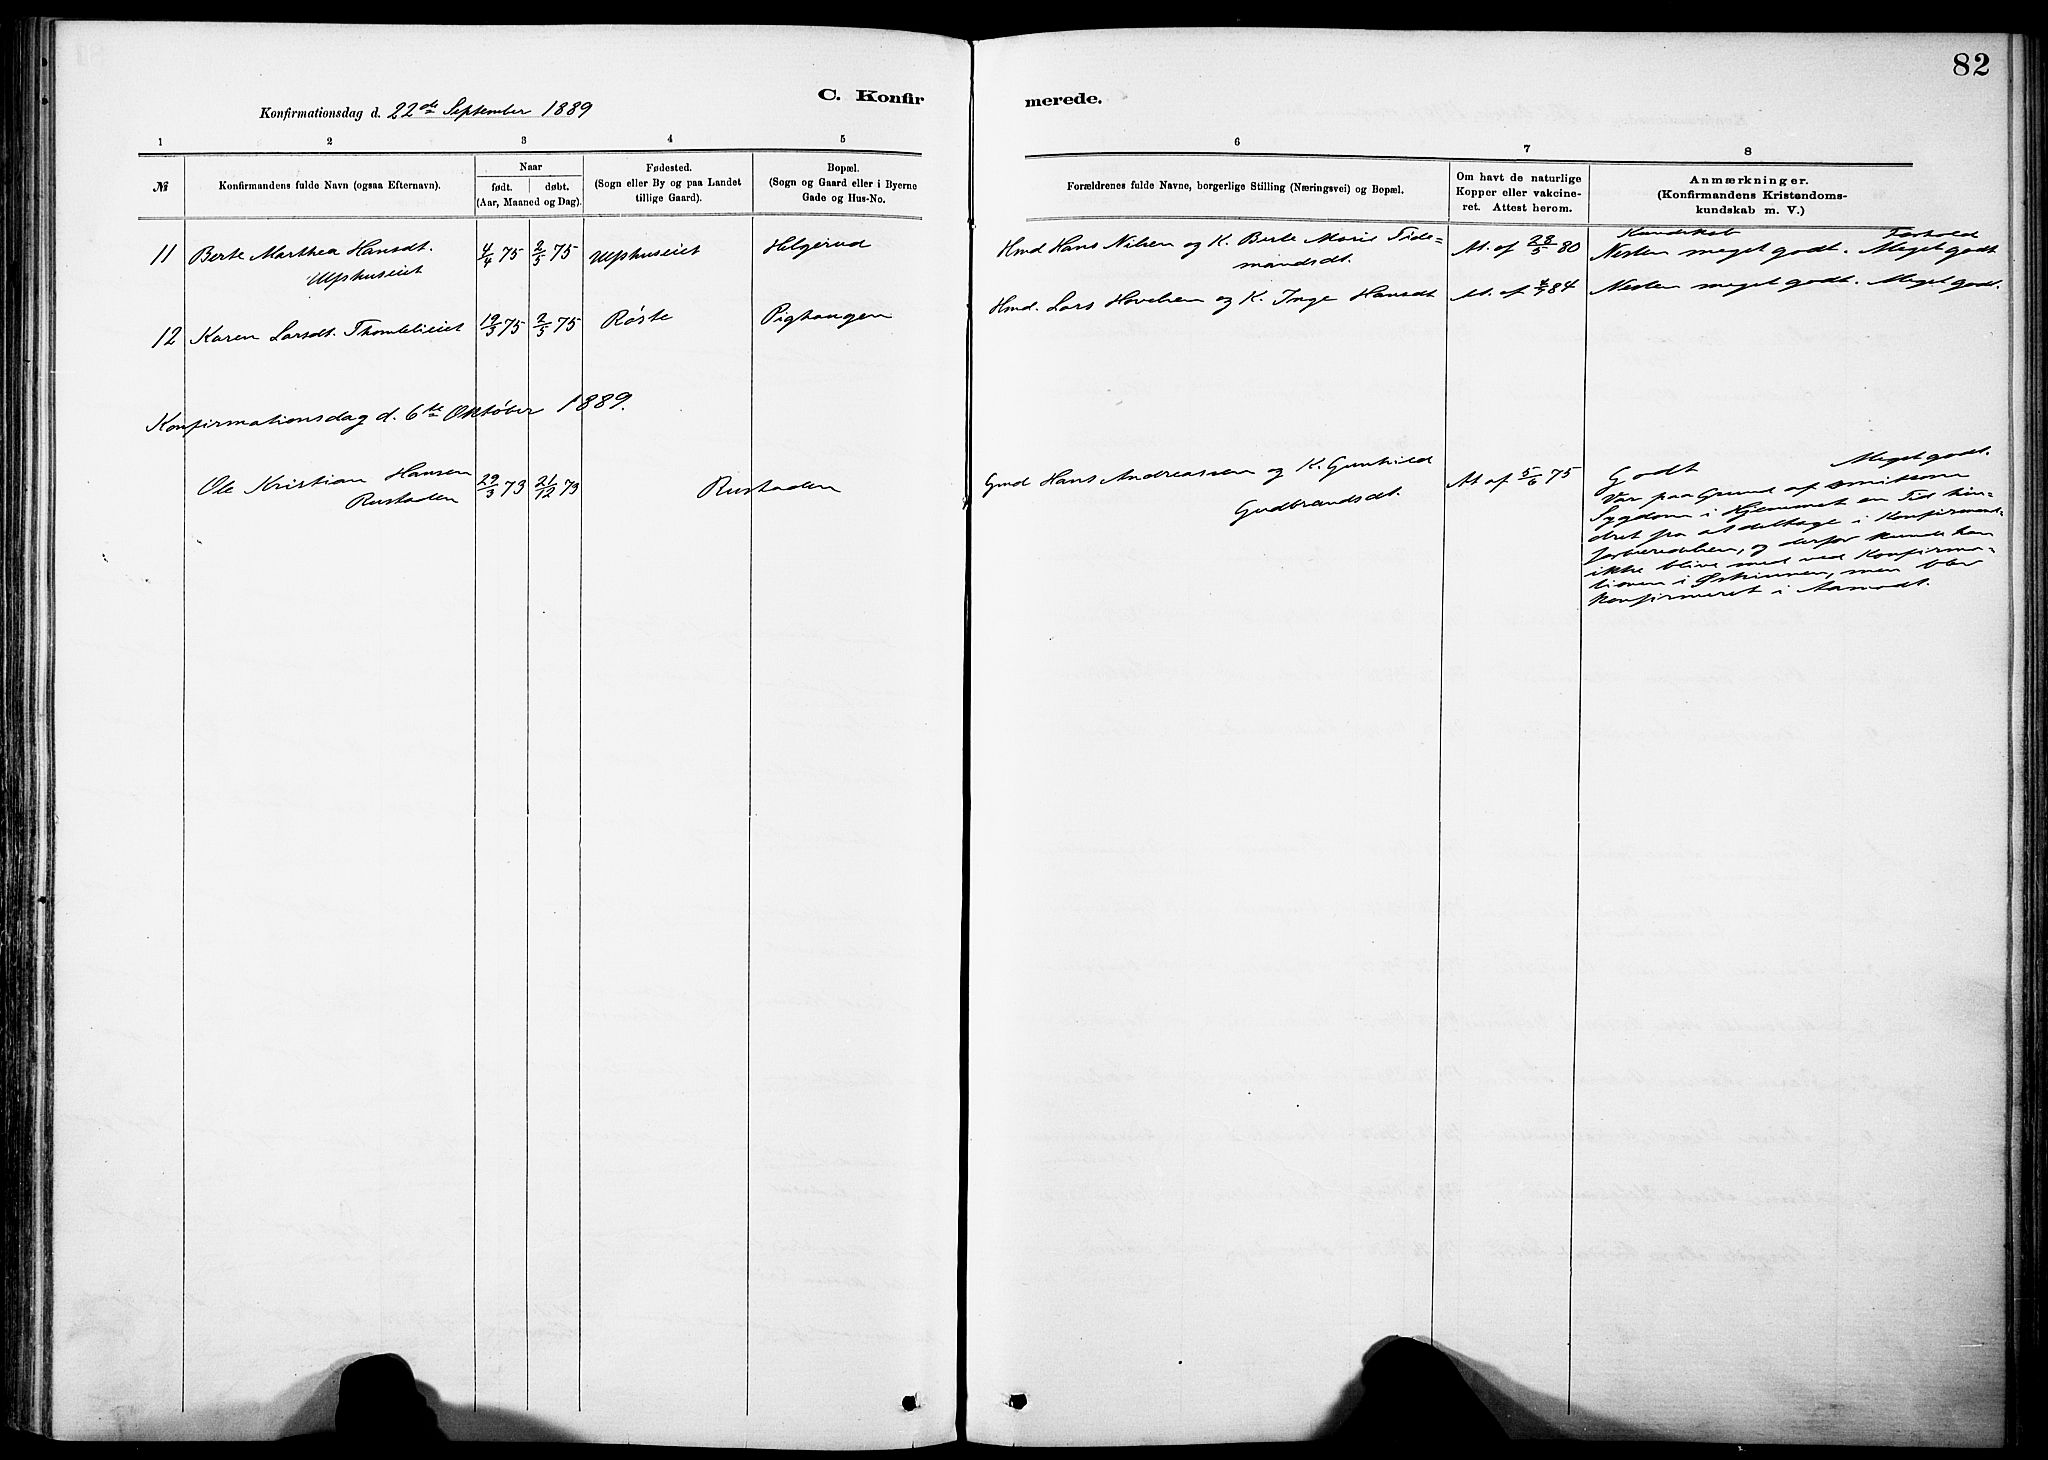 82
C. Konfir merede.
Konfirmationsdag d. 22de September 1889
1 2 3 4 5 6 7 8
№
Konfirmandens fulde Navn (ogsaa Efternavn).
Naar
født. døbt.
(Aar, Maaned og Dag).
Fødested.
(Sogn eller By og paa Landet
tillige Gaard).
Bopæl.
(Sogn og Gaard eller i Byerne
Gade og Hus-No.
Forældrenes fulde Navne, borgerlige Stilling (Næringsvei) og Bopæl.
Om havt de naturlige
Kopper eller vakcine-
ret. Attest herom.
Anmærkninger.
(Konfirmandens Kristendoms-
kundskab m. V.)
Kundskab Forhold
11 Berte Marthea Hansdt. 4/4 75 2/5 75 Ulfshuseiet Helgerud Hmd Hans Nilsen og K. Berte Marie Tide- At. af 28/5 80 Nesten meget godt. Meget godt
Ulfshuseiet mandsdt.
12 Karen Larsdt. Thomleieiet 12/3 75 2/5 75 Røste Pighaugen Hmd. Lars Hovelsen og K. Inge Hansdt At. af 84 Nesten meget godt. Meget godt.
Konfirmationsdag d. 6te Oktober 1889.
Ole Kristian Hansen 29/3 73 21/12 73 Rustaden Gmd Hans Andreassen og K. Gunhild At af 5/6 75 Godt Meget godt.
Rustaden Gudbrandsdt.
Var paa Grund af smitsom
Sygdom i Hjemmet en Tid hin-
dret fra at deltage i Konfirmant-
forberedelsen, og derfor kunde han
ikke blive med ved Konfirma-
tionen i Østsinnen, men blev
konfirmeret i Aamodt.